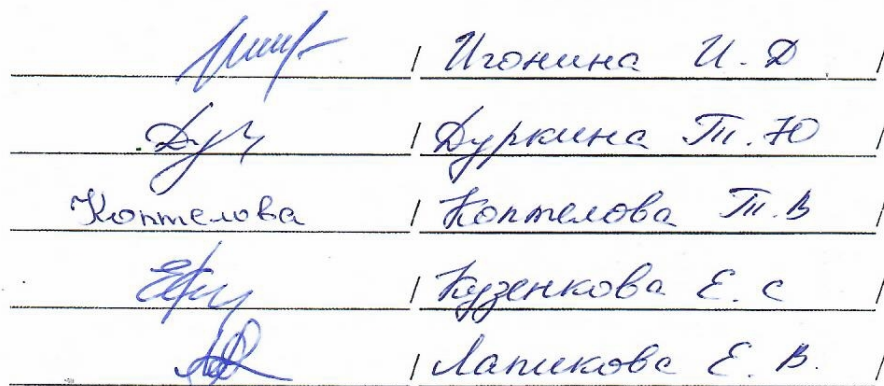 / Игонина И. Д /
Дур / Дуркина Т. Ю /
Коптелова / Коптелова Т. В /
/ Кузенкова Е. с /
/ Лапикова Е. В. /